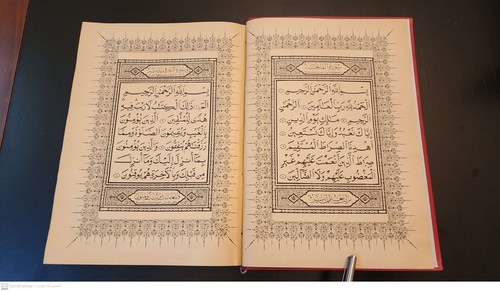 سُورَةُ الفَاتِحَةِ
بِسْمِ اللَّهِ الرَّحْمَٰنِ الرَّحِيمِ
الْحَمْدُ لِلَّهِ رَبِّ الْعَالَمِينَ الرَّحْمَٰنِ
الرَّحِيمِ مَٰلِكِ يَوْمِ الدِّينِ
إِيَّاكَ نَعْبُدُ وَإِيَّاكَ نَسْتَعِينُ
اهْدِنَا الصِّرَاطَ الْمُسْتَقِيمَ
صِرَاطَ الَّذِينَ أَنْعَمْتَ عَلَيْهِمْ غَيْرِ
الْمَغْضُوبِ عَلَيْهِمْ وَلَا الضَّالِّينَ
بِسْمِ اللَّهِ الرَّحْمَٰنِ الرَّحِيمِ
الٓمٓ ذَٰلِكَ الْكِتَٰبُ لَا رَيْبَ فِيهِ
هُدًى لِلْمُتَّقِينَ الَّذِينَ يُؤْمِنُونَ
بِالْغَيْبِ وَيُقِيمُونَ الصَّلَوٰةَ وَمِمَّا
رَزَقْنَٰهُمْ يُنْفِقُونَ وَالَّذِينَ يُؤْمِنُونَ
بِمَا أُنْزِلَ إِلَيْكَ وَمَا أُنْزِلَ
مِنْ قَبْلِكَ وَبِالْآخِرَةِ هُمْ يُوقِنُونَ